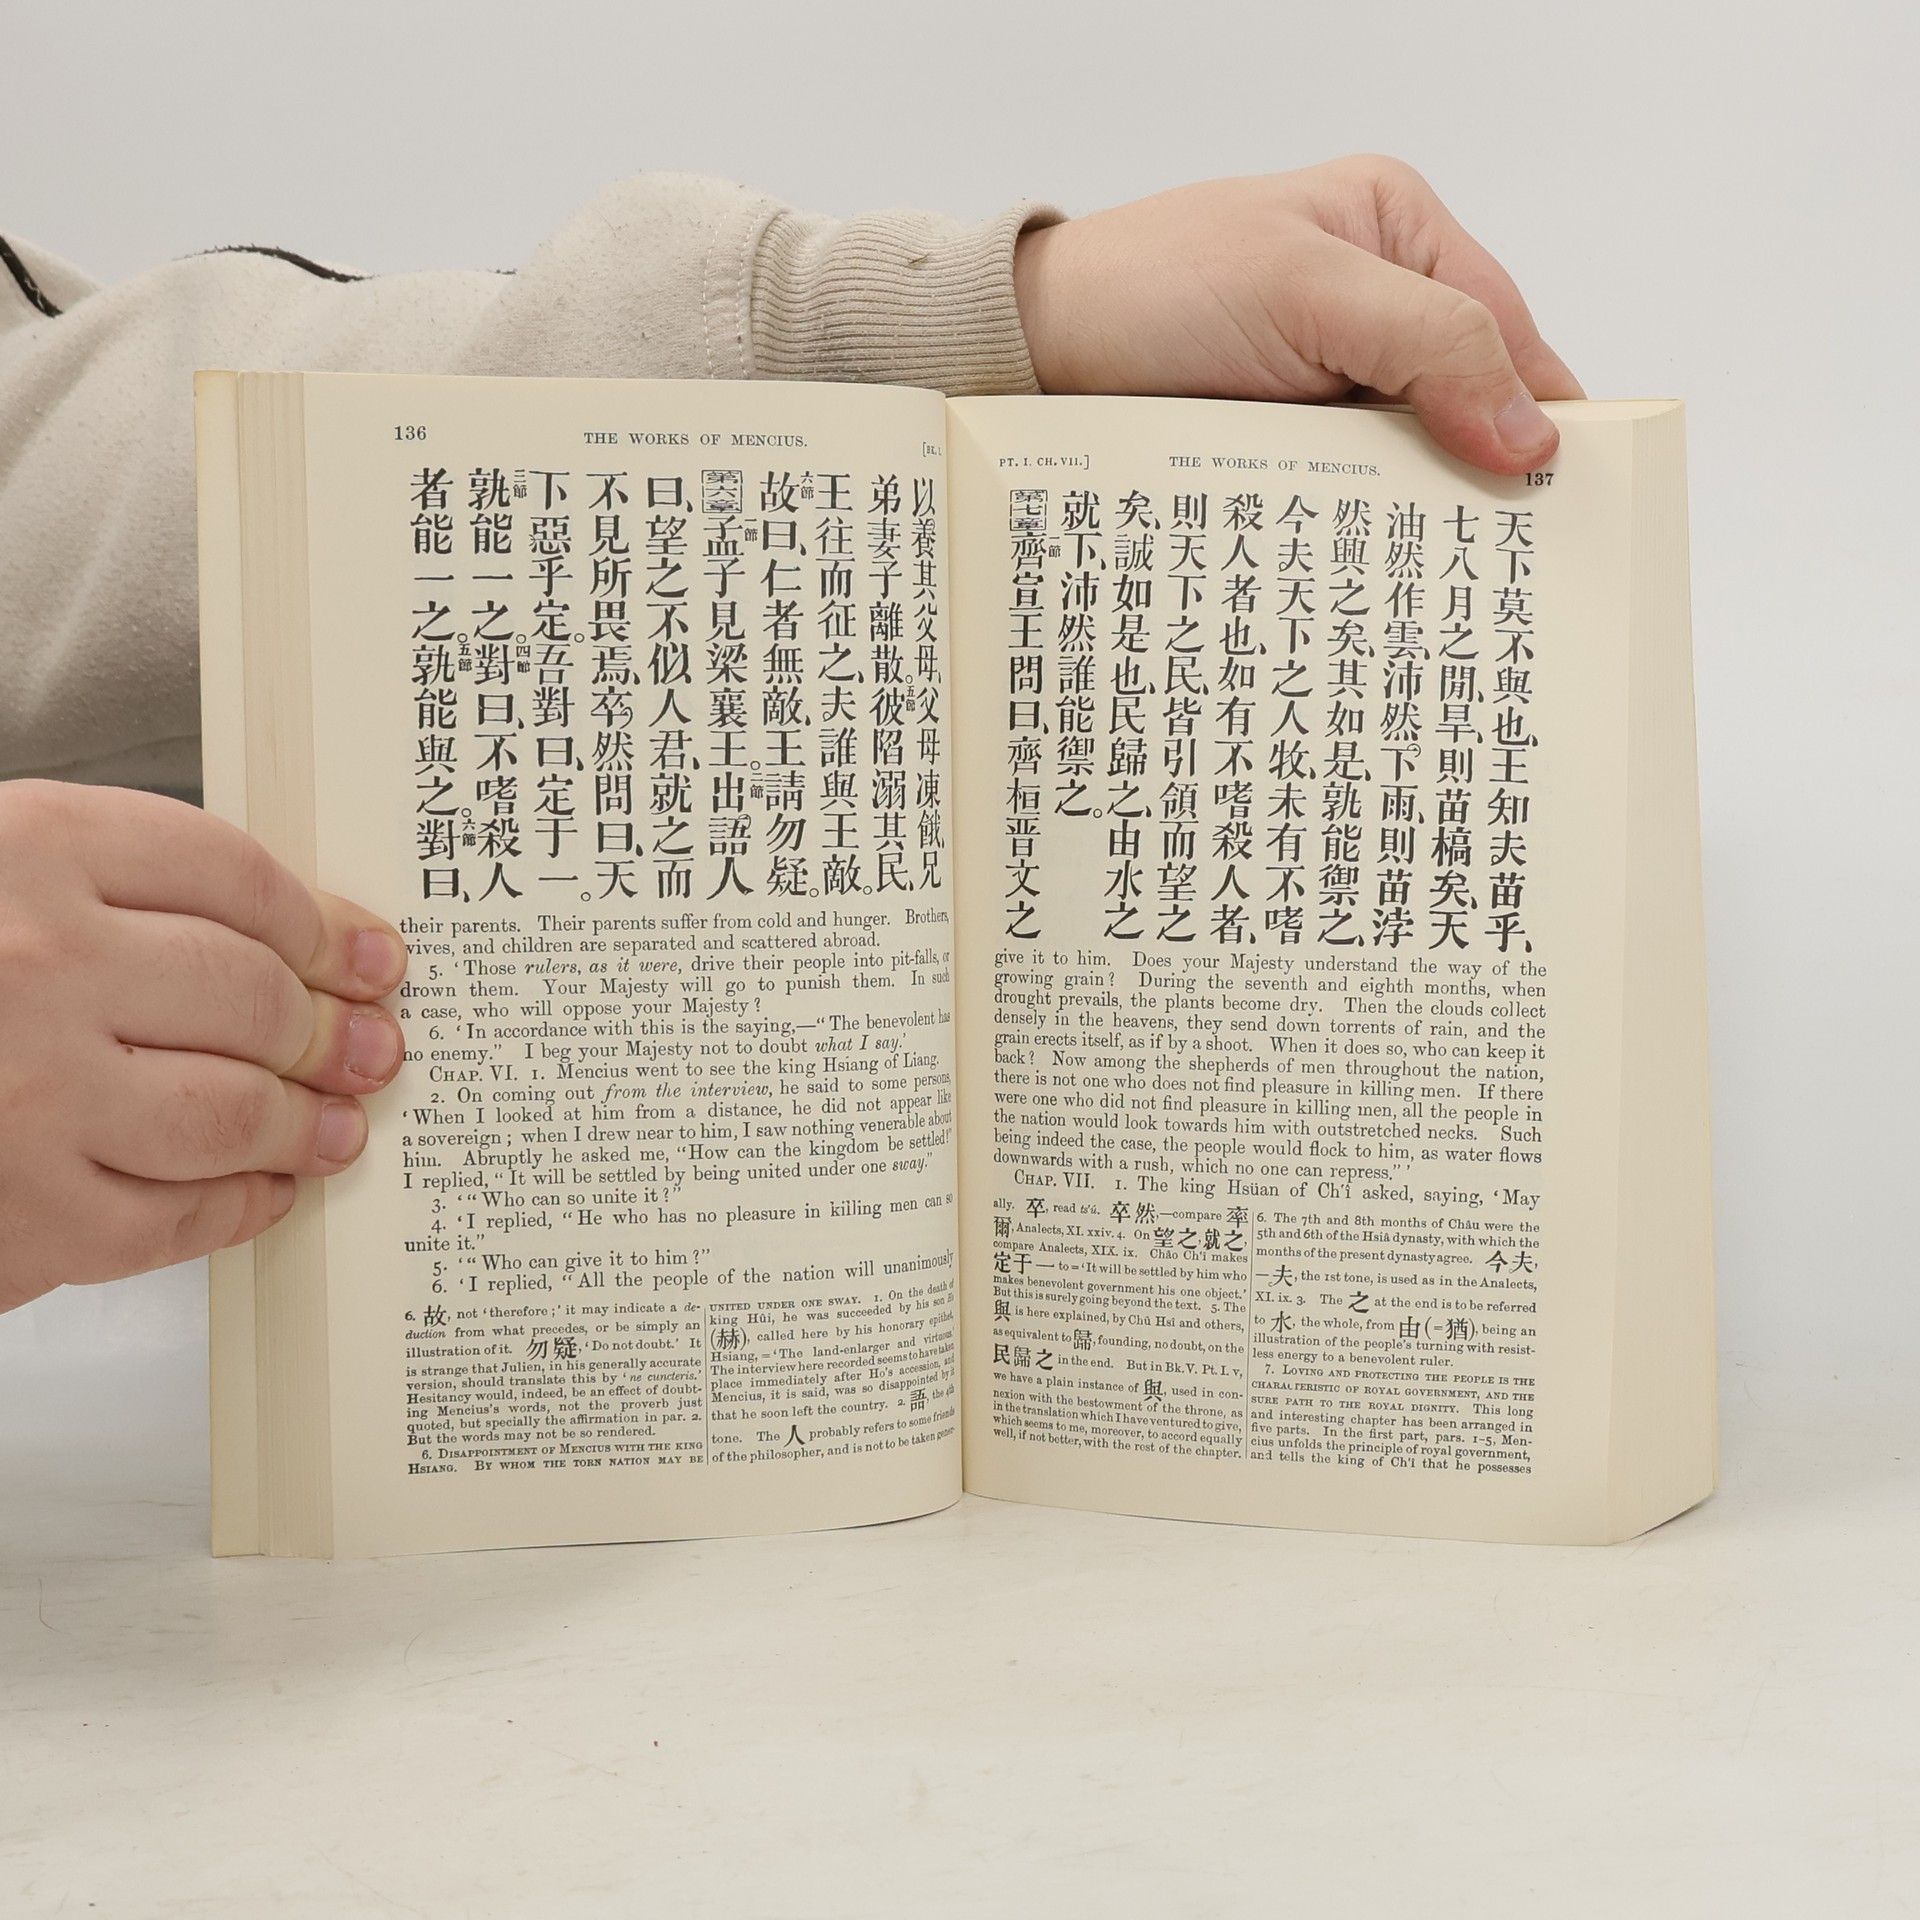 136
THE WORKS OF MENCIUS.
[BK. I.
以養其父母、父母凍餓、兄
弟妻子離散。五節彼陷溺其民、
王往而征之、夫誰與王敵。
六節故曰、仁者無敵、王請勿疑。
第六章一節孟子見梁襄王。二節出語人
曰、望之不似人君、就之而
不見所畏焉、卒然問曰、天
下惡乎定。吾對曰、定于一。
三節孰能一之。四節對曰、不嗜殺人
者能一之。五節孰能與之。六節對曰、
their parents. Their parents suffer from cold and hunger. Brothers,
wives, and children are separated and scattered abroad.
5. 'Those rulers, as it were, drive their people into pit-falls, or
drown them. Your Majesty will go to punish them. In such
a case, who will oppose your Majesty?
6. 'In accordance with this is the saying,—"The benevolent has
no enemy." I beg your Majesty not to doubt what I say.'
CHAP. VI. 1. Mencius went to see the king Hsiang of Liang.
2. On coming out from the interview, he said to some persons,
'When I looked at him from a distance, he did not appear like
a sovereign; when I drew near to him, I saw nothing venerable about
him. Abruptly he asked me, "How can the kingdom be settled?"
I replied, "It will be settled by being united under one sway."
3. '"Who can so unite it?"
4. 'I replied, "He who has no pleasure in killing men can so
unite it."
5. '"Who can give it to him?"
6. 'I replied, "All the people of the nation will unanimously
6. 故, not 'therefore;' it may indicate a de-
duction from what precedes, or be simply an
illustration of it. 勿疑, 'Do not doubt.' It
is strange that Julien, in his generally accurate
version, should translate this by 'ne cuncteris.'
Hesitancy would, indeed, be an effect of doubt-
ing Mencius's words, not the proverb just
quoted, but specially the affirmation in par. 2.
But the words may not be so rendered.
6. DISAPPOINTMENT OF MENCIUS WITH THE KING
HSIANG. BY WHOM THE TORN NATION MAY BE
UNITED UNDER ONE SWAY. 1. On the death of
king Hûi, he was succeeded by his son Ho
(赫), called here by his honorary epithet,
Hsiang, = 'The land-enlarger and virtuous.'
The interview here recorded seems to have taken
place immediately after Ho's accession, and
Mencius, it is said, was so disappointed by it
that he soon left the country. 2. 語, the 4th
tone. The 人 probably refers to some friends
of the philosopher, and is not to be taken gener-
PT. I. CH. VII.]
THE WORKS OF MENCIUS.
137
天下莫不與也、王知夫苗乎、
七八月之閒、旱、則苗槁矣、天
油然作雲、沛然下雨、則苗浡
然興之矣、其如是、孰能禦之、
今夫天下之人牧、未有不嗜
殺人者也、如有不嗜殺人者、
則天下之民、皆引領而望之
矣、誠如是也、民歸之、由水之
就下、沛然誰能禦之。
第七章一節齊宣王問曰、齊桓晋文之
give it to him. Does your Majesty understand the way of the
growing grain? During the seventh and eighth months, when
drought prevails, the plants become dry. Then the clouds collect
densely in the heavens, they send down torrents of rain, and the
grain erects itself, as if by a shoot. When it does so, who can keep it
back? Now among the shepherds of men throughout the nation,
there is not one who does not find pleasure in killing men. If there
were one who did not find pleasure in killing men, all the people in
the nation would look towards him with outstretched necks. Such
being indeed the case, the people would flock to him, as water flows
downwards with a rush, which no one can repress."'
CHAP. VII. 1. The king Hsüan of Ch'î asked, saying, 'May
ally. 卒, read ts'ú. 卒然,—compare 率
爾, Analects, XI. xxiv. 4. On 望之, 就之,
compare Analects, XIX. ix. Châo Ch'i makes
定于一 to = 'It will be settled by him who
makes benevolent government his one object.'
But this is surely going beyond the text. 5. The
與 is here explained, by Chû Hsî and others,
as equivalent to 歸, founding, no doubt, on the
民歸之 in the end. But in Bk. V. Pt. I. v,
we have a plain instance of 與, used in con-
nexion with the bestowment of the throne, as
in the translation which I have ventured to give,
which seems to me, moreover, to accord equally
well, if not better, with the rest of the chapter.
6. The 7th and 8th months of Châu were the
5th and 6th of the Hsiâ dynasty, with which the
months of the present dynasty agree. 今夫,
—夫, the 1st tone, is used as in the Analects,
XI. ix. 3. The 之 at the end is to be referred
to 水, the whole, from 由 (=猶), being an
illustration of the people's turning with resist-
less energy to a benevolent ruler.
7. LOVING AND PROTECTING THE PEOPLE IS THE
CHARACTERISTIC OF ROYAL GOVERNMENT, AND THE
SURE PATH TO THE ROYAL DIGNITY. This long
and interesting chapter has been arranged in
five parts. In the first part, pars. 1-5, Men-
cius unfolds the principle of royal government,
and tells the king of Ch'î that he possesses